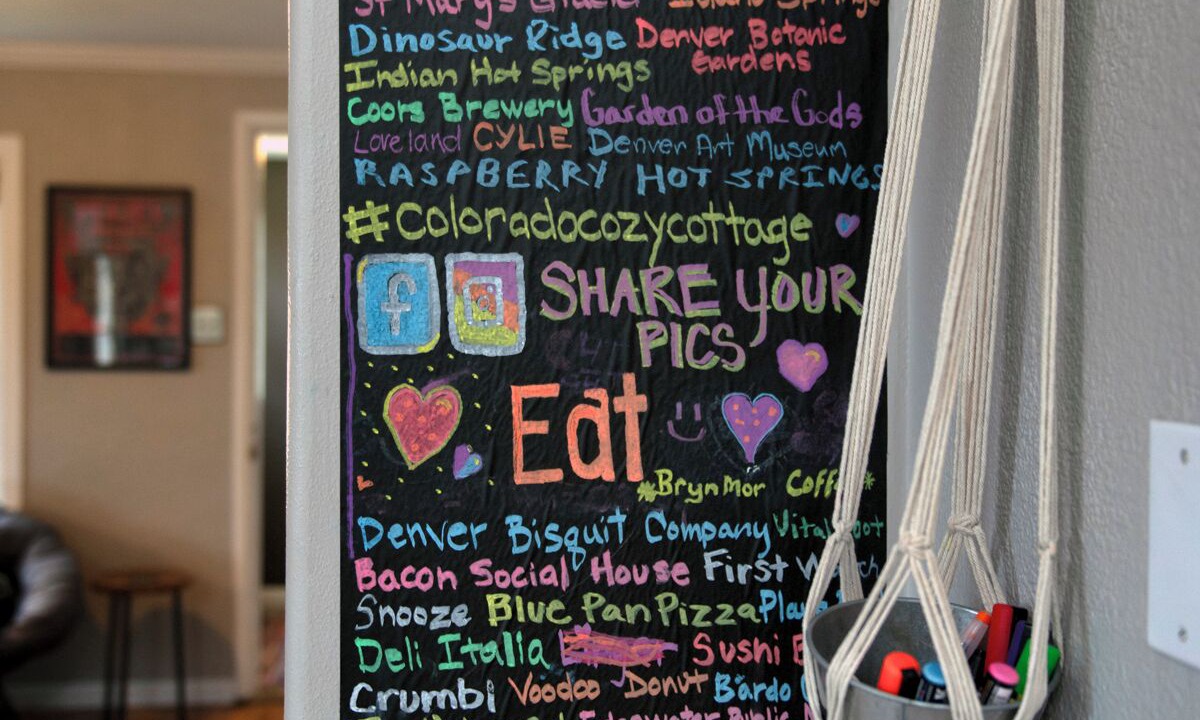 St Mary's Glacier Idaho Springs
Dinosaur Ridge Denver Botanic
Gardens
Indian Hot Springs
Coors Brewery Garden of the Gods
Loveland CYLIE Denver Art Museum
RASPBERRY HOT SPRINGS
#coloradocozycottage
f
SHARE YOUR
PICS
Eat
*Bryn Mor
Denver Bisquit Company
Bacon Social House First
Snooze Blue Pan Pizza
Deli Italia Sushi
Crumbl Voodoo Donut Bardo
Edgewater Public